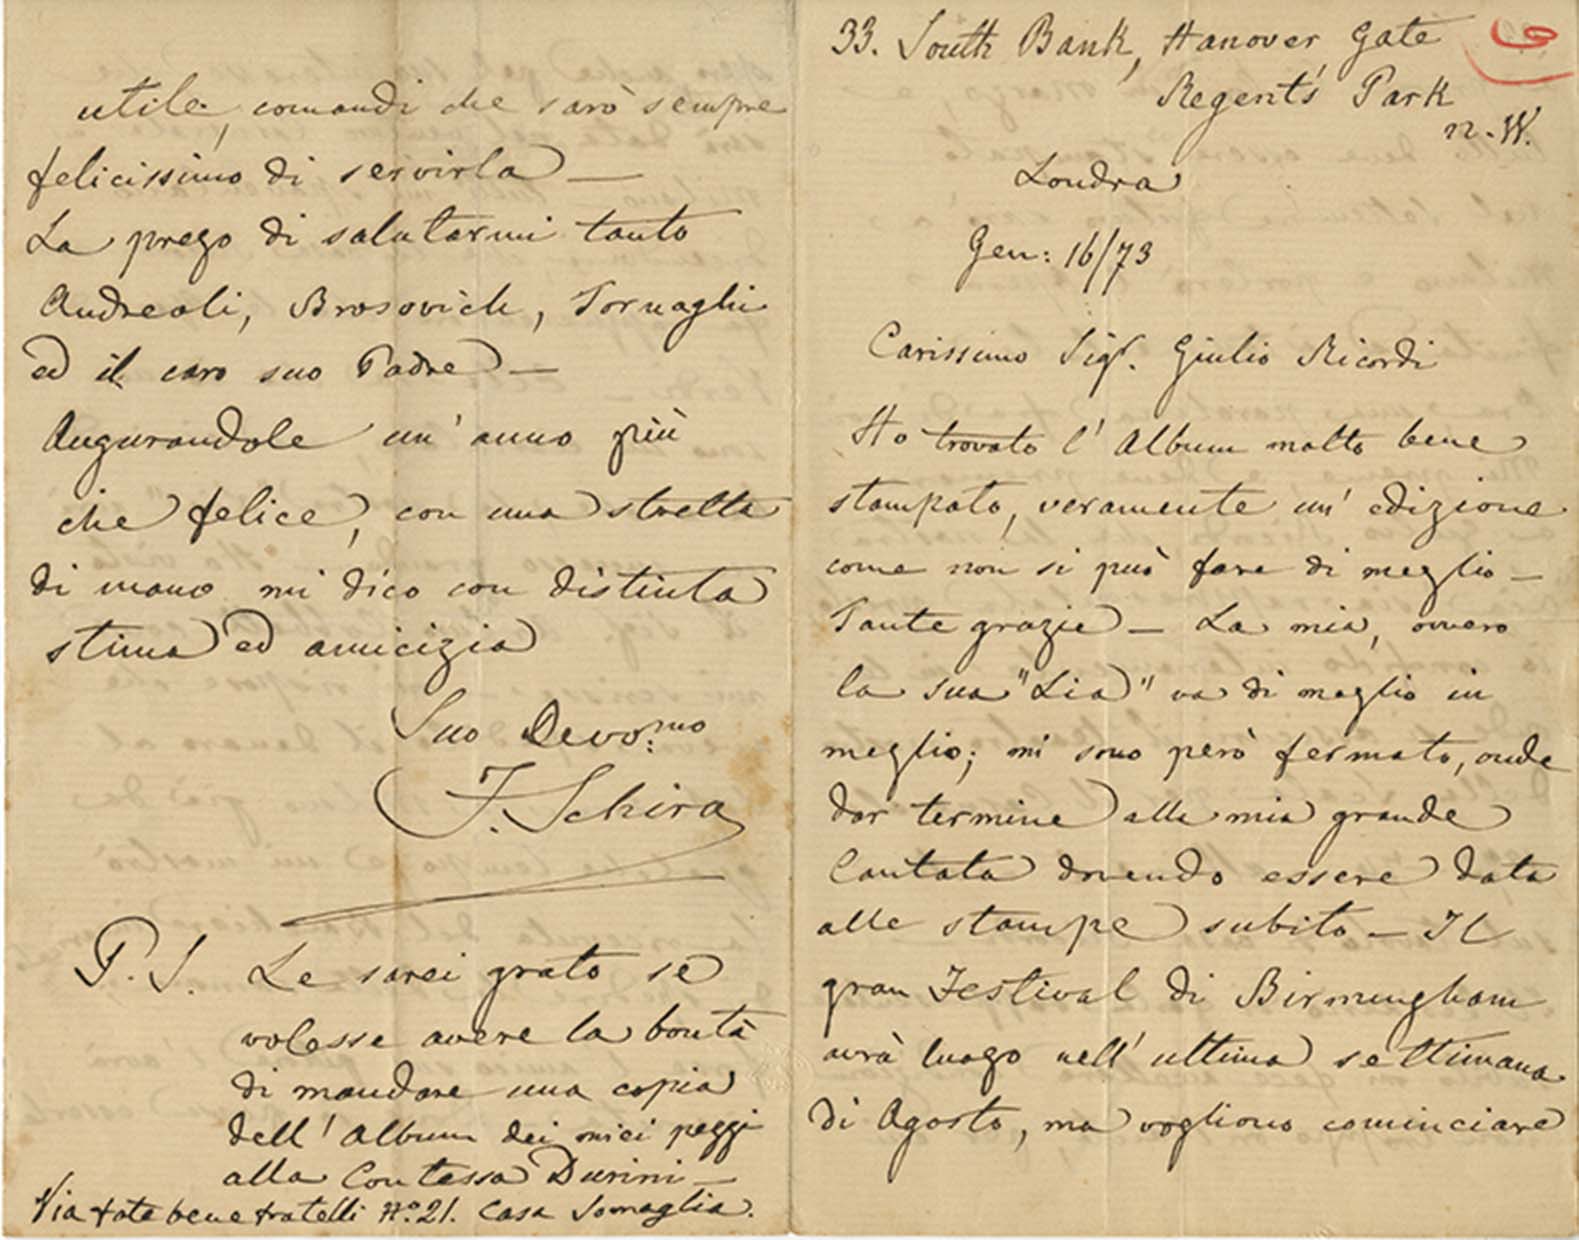 33. South Bank, Hanover Gate
Regent's Park
n. W.
Londra
Gen: 16/73
Carissimo Sigr. Giulio Ricordi
Ho trovato l'Album molto bene
stampato, veramente un'edizione
come non si può fare di meglio —
Tante grazie — La mia, ovvero
la sua "Lia" va di meglio in
meglio; mi sono però fermato, onde
dar termine alla mia grande
Cantata dovendo essere data
alle stampe subito — Il
gran Festival di Birmingham
avrà luogo nell'ultima settimana
di Agosto, ma vogliono cominciare
utile, comandi che sarò sempre
felicissimo di servirla —
La prego di salutarmi tanto
Andreoli, Brosovich, Tornaghi
ed il caro suo Padre —
Augurandole un'anno più
che felice, con una stretta
di mano mi dico con distinta
stima ed amicizia
Suo Devo:mo
F. Schira
P. S. Le sarei grato se
volesse avere la bontà
di mandare una copia
dell'Album dei miei pezzi
alla Contessa Durini —
Via fate bene fratelli No. 21. Casa Somaglia.